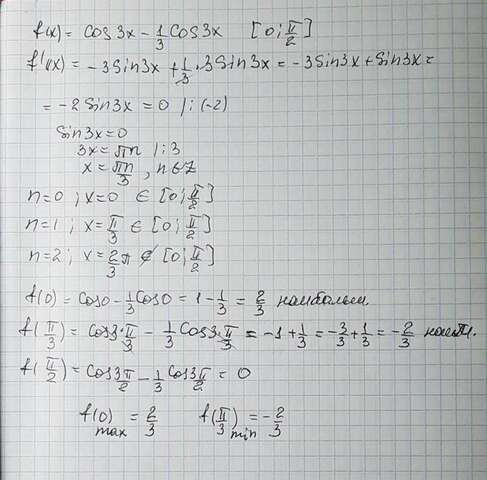 f(x) = cos3x - 1/3 cos3x [0; π/2]
f'(x) = -3sin3x + 1/3 · 3sin3x = -3sin3x + sin3x =
= -2sin3x = 0 |:(-2)
sin3x = 0
3x = πn |:3
x = πn/3, n∈Z
n=0; x=0 ∈ [0; π/2]
n=1; x=π/3 ∈ [0; π/2]
n=2; x=2/3 π ∉ [0; π/2]
f(0) = cos0 - 1/3 cos0 = 1 - 1/3 = 2/3 наибольш.
f(π/3) = cos3·π/3 - 1/3 cos3·π/3 = -1 + 1/3 = -3/3 + 1/3 = -2/3 наим.
f(π/2) = cos3π/2 - 1/3 cos3π/2 = 0
f(0) max = 2/3 f(π/3) min = -2/3